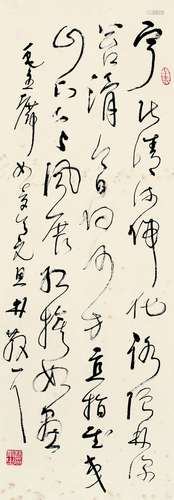 宁化清流归化路隘林深
苔滑今日向何方直指武夷
山下山下风展红旗如画
毛主席如梦令元旦 林散之